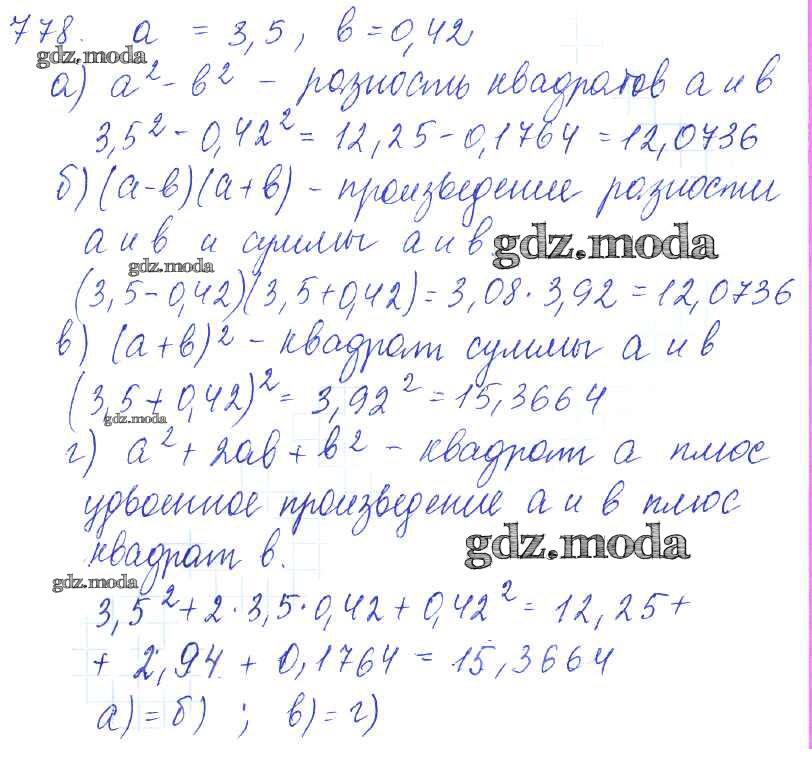 778. a = 3,5, в = 0,42
gdz.moda
а) a² - в² - разность квадратов a и в
3,5² - 0,42² = 12,25 - 0,1764 = 12,0736
б) (a - в)(a + в) - произведение разности
a и в и суммы a и в.
gdz.moda
gdz.moda
(3,5 - 0,42)(3,5 + 0,42) = 3,08 · 3,92 = 12,0736
в) (a + в)² - квадрат суммы a и в
(3,5 + 0,42)² = 3,92² = 15,3664
gdz.moda
г) a² + 2aв + в² - квадрат a плюс
удвоенное произведение a и в плюс
квадрат в.
gdz.moda
gdz.moda
3,5² + 2 · 3,5 · 0,42 + 0,42² = 12,25 +
+ 2,94 + 0,1764 = 15,3664
а) = б) ; в) = г)